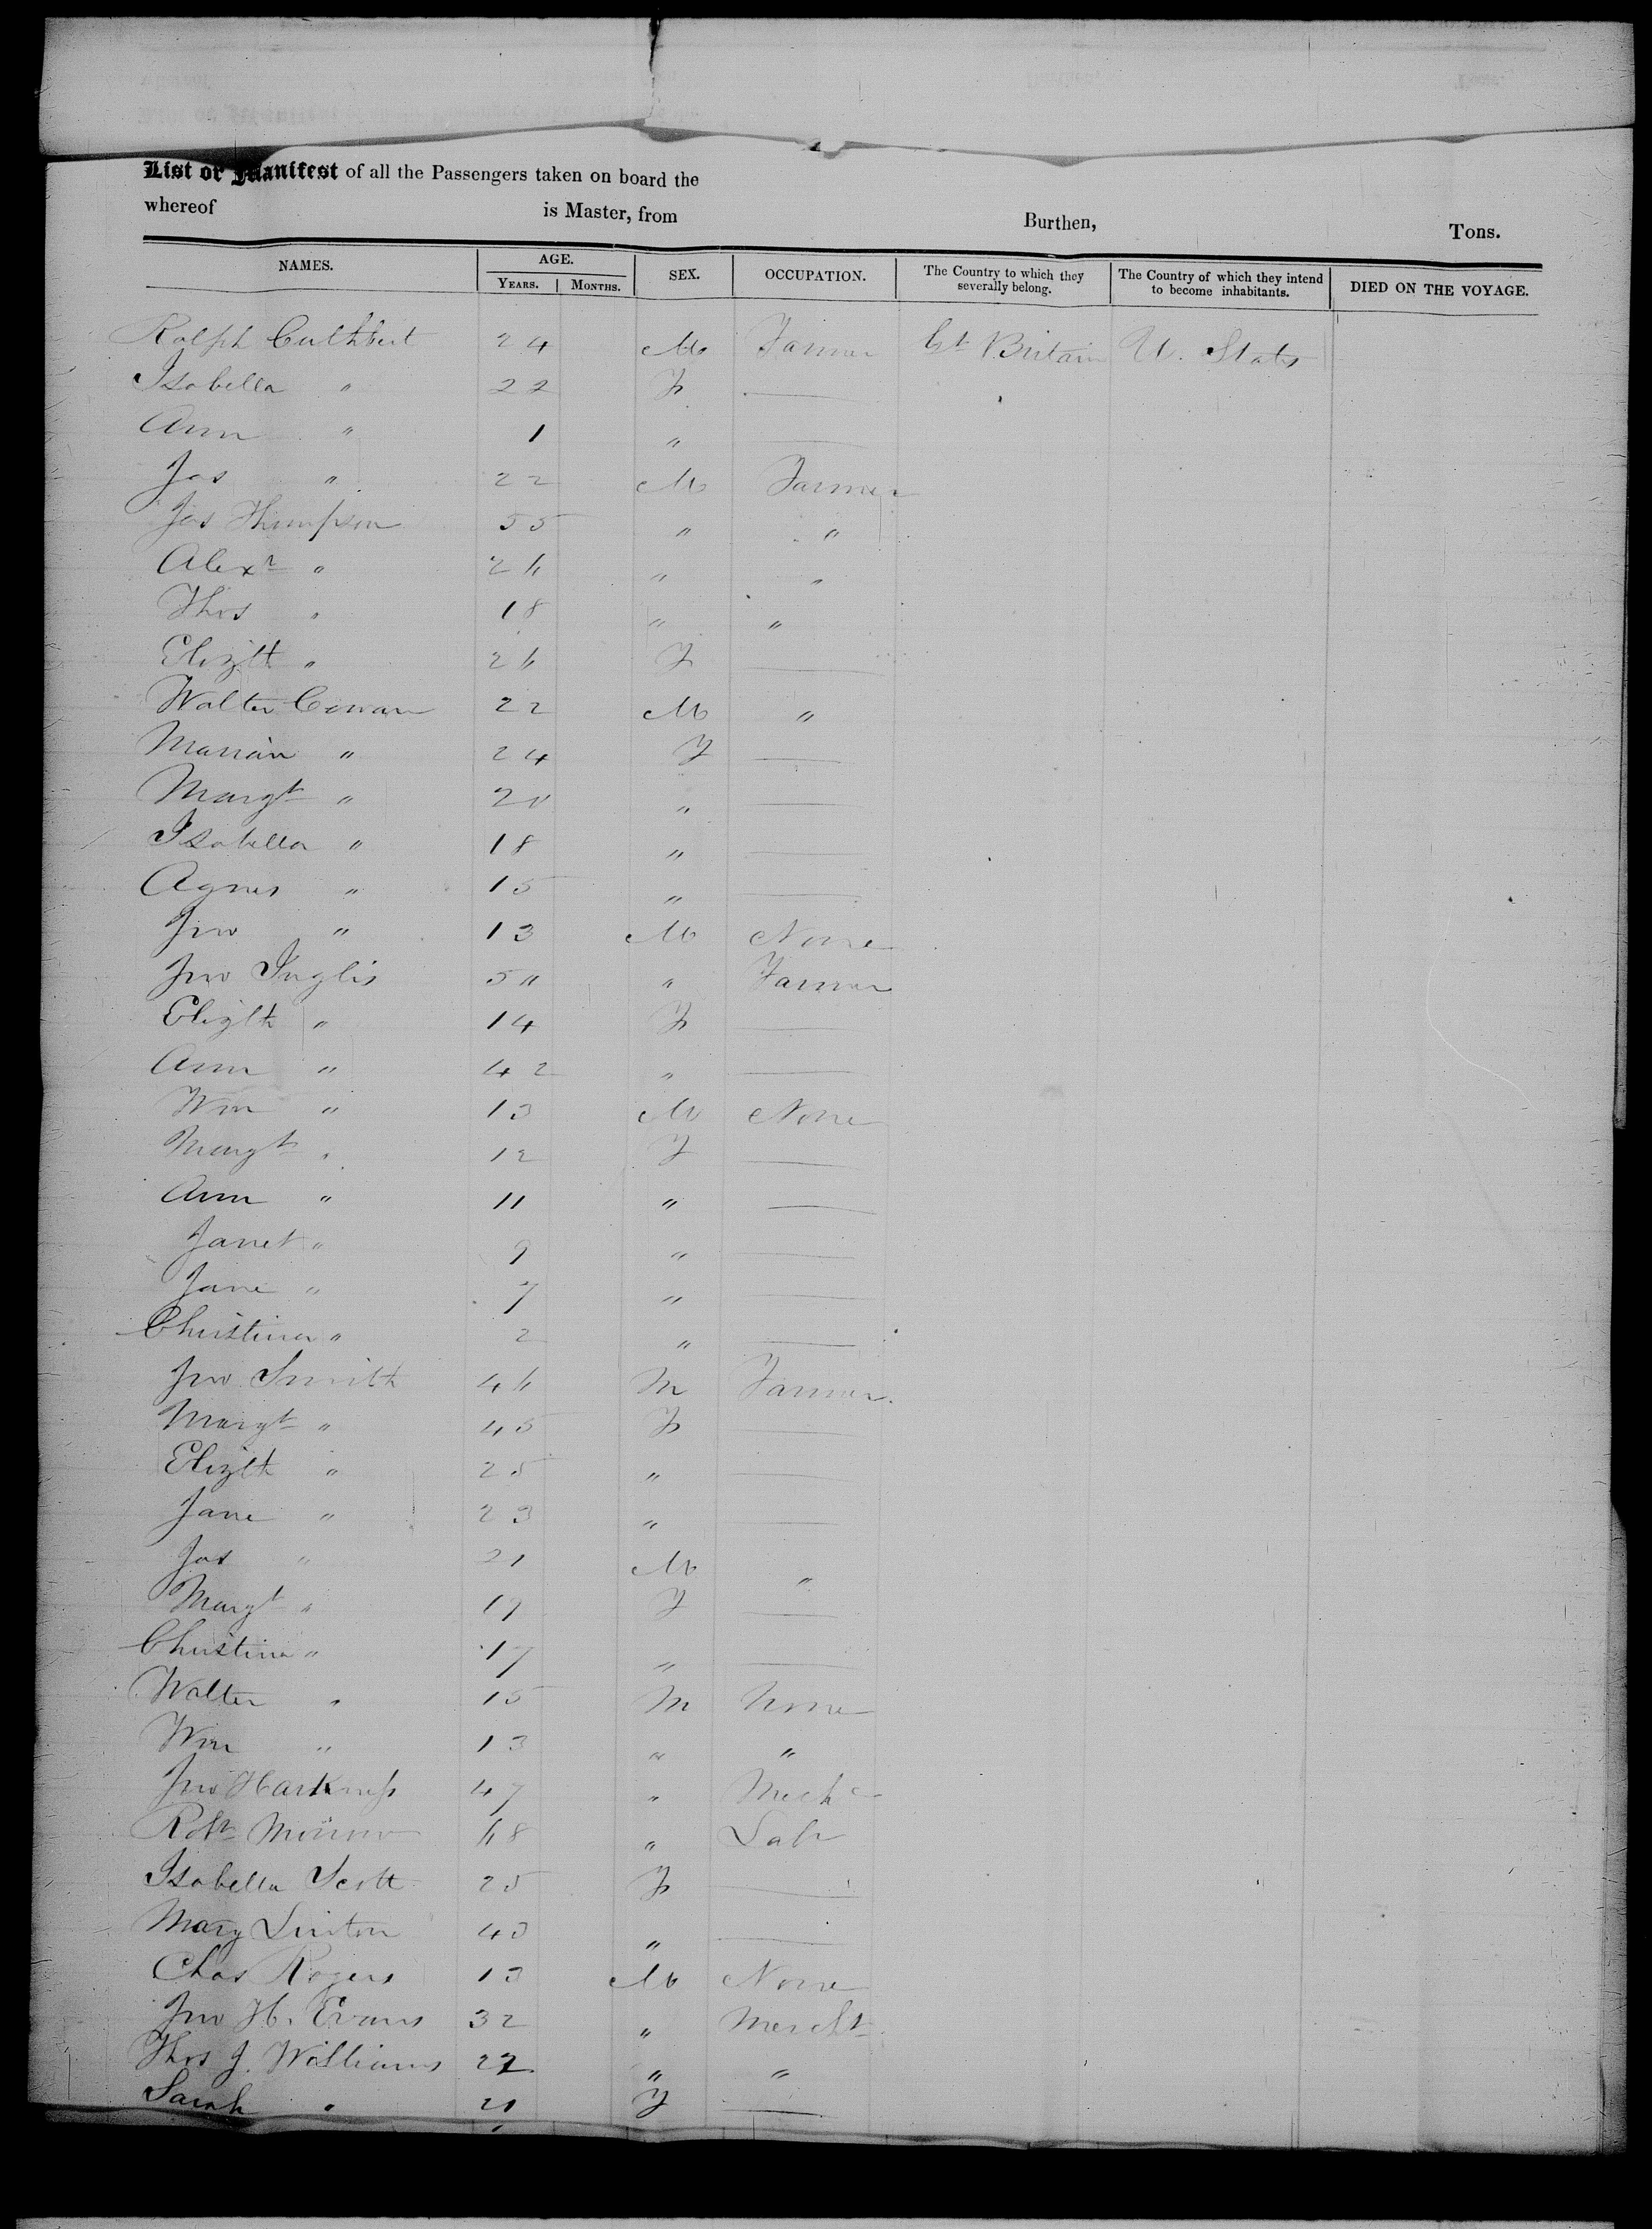 List or Manifest of all the Passengers taken on board the
whereof is Master, from Burthen, Tons.
NAMES. AGE. SEX. OCCUPATION. The Country to which they severally belong. The Country of which they intend to become inhabitants. DIED ON THE VOYAGE.
YEARS. MONTHS.
Ralph Cuthbert 24 M Farmer Gt Britain U. States
Isabella " 22 F —
Ann " 1 " —
Jas " 22 M Farmer
Jas Thompson 55 " "
Alexr " 26 " "
Thos " 18 " "
Elizth " 26 F —
Walter Cowan 22 M "
Marian " 24 F —
Margt " 20 " —
Isabella " 18 " —
Agnes " 15 " —
Jno " 13 M None
Jno Inglis " Farmer
Elizth " 14 F —
Ann " 42 " —
Wm " 13 M None
Margt " 12 F —
Ann " 11 " —
Janet " 9 " —
Jane " 7 " —
Christina " 2 " —
Jno Smith 46 M Farmer
Margt " 45 F —
Elizth " 25 " —
Jane " 23 " —
Jas " 21 M "
Margt " 19 F —
Christina " 17 " —
Walter " 15 M None
Wm " 13 " "
Jno Harkness 47 " Mechc
Robt 68 " Labr
Isabella Scott 25 F —
Mary Linton 40 " —
Chas Rogers 13 M None
Jno H. Evans 32 " Mercht
Thos J. Williams 22 " "
Sarah " 21 F —